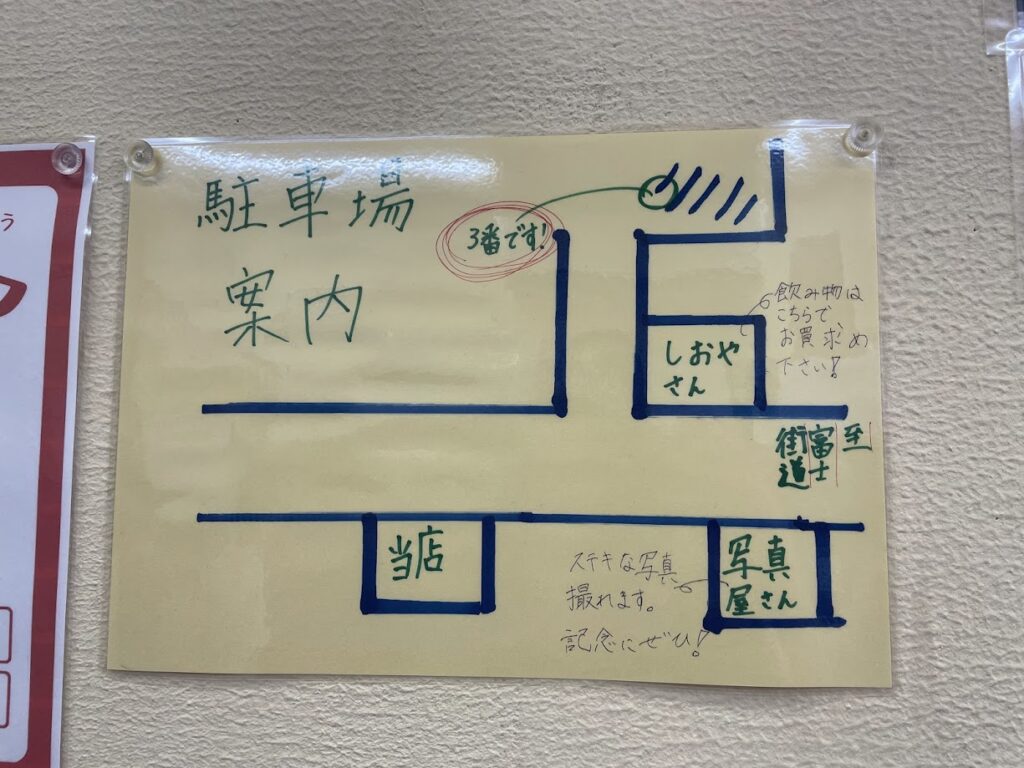 駐車場
案内
3番です!
飲み物は
こちらで、
お買求め
下さい!
しおや
さん
至
富士
街道
当店
写真
屋さん
ステキな写真
撮れます。
記念にぜひ!
う